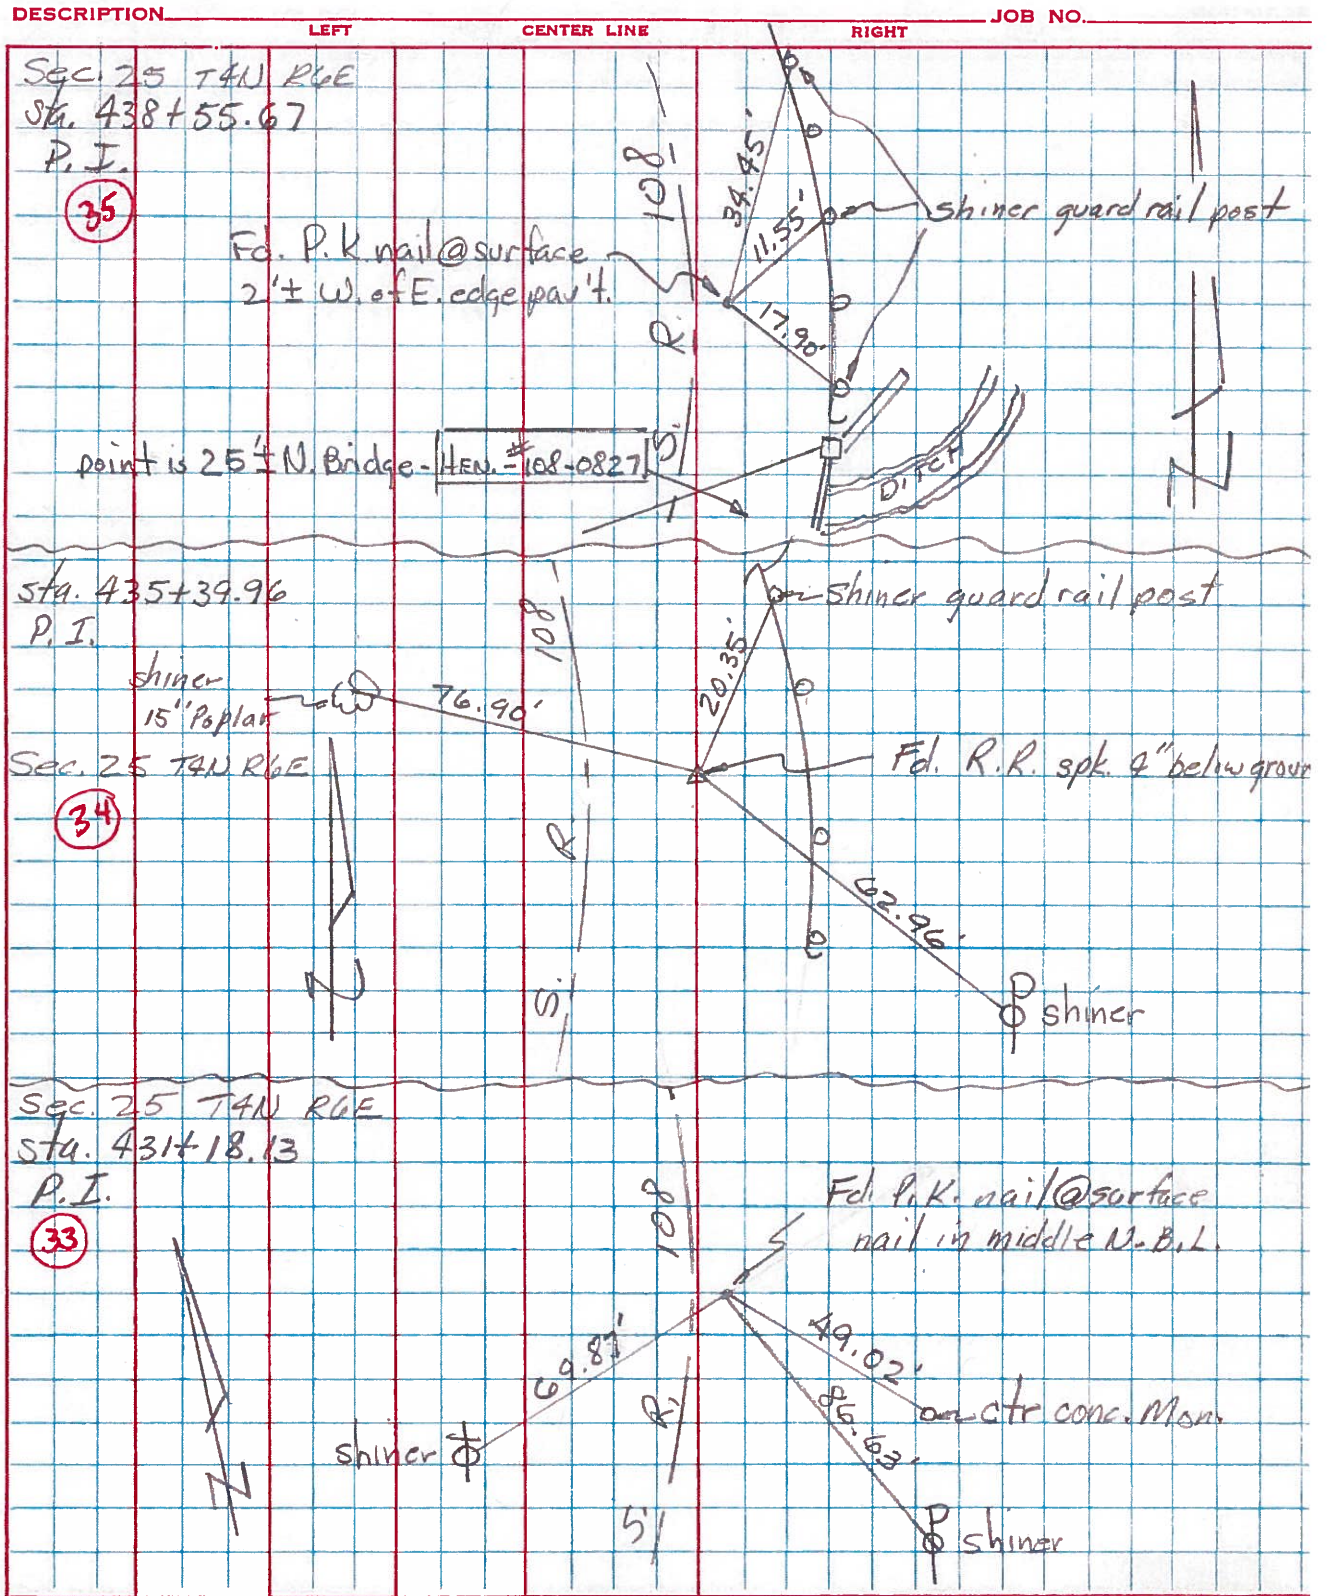 DESCRIPTION JOB NO.
LEFT CENTER LINE RIGHT
Sec. 25 T4N R6E
Sta. 438+55.67
P. I.
35
Fd. P.K. nail @ surface
2'± W. of E. edge pav't.
34.45'
11.55'
17.90'
shiner guard rail post
S. R. 108
point is 25'± N. Bridge - HEN. - #108-0827
DITCH
N
sta. 435+39.96
P. I.
shiner
15" Poplar
76.90'
Sec. 25 T4N R6E
34
S. R. 108
20.35'
shiner guard rail post
Fd. R.R. spk. 4" below groun
62.96'
P shiner
N
Sec. 25 T4N R6E
sta. 431+18.13
P. I.
33
S R. 108
Fd. P.K. nail @ surface
nail in middle N.B.L.
69.87'
49.02'
85.63'
ctr conc. Mon.
shiner
P shiner
N